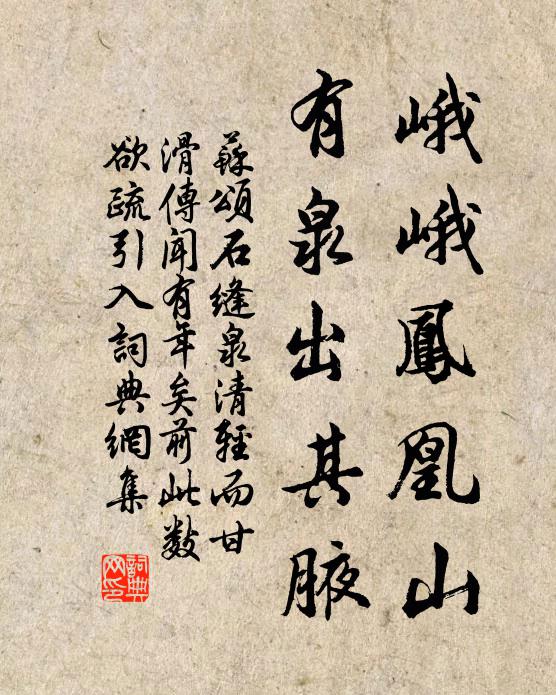 峨峨鳳凰山
有泉出其腋
蘇頌石縫泉清輕而甘
滑傳聞有年矣前此数
欲疏引入詞典網集
詞典网印